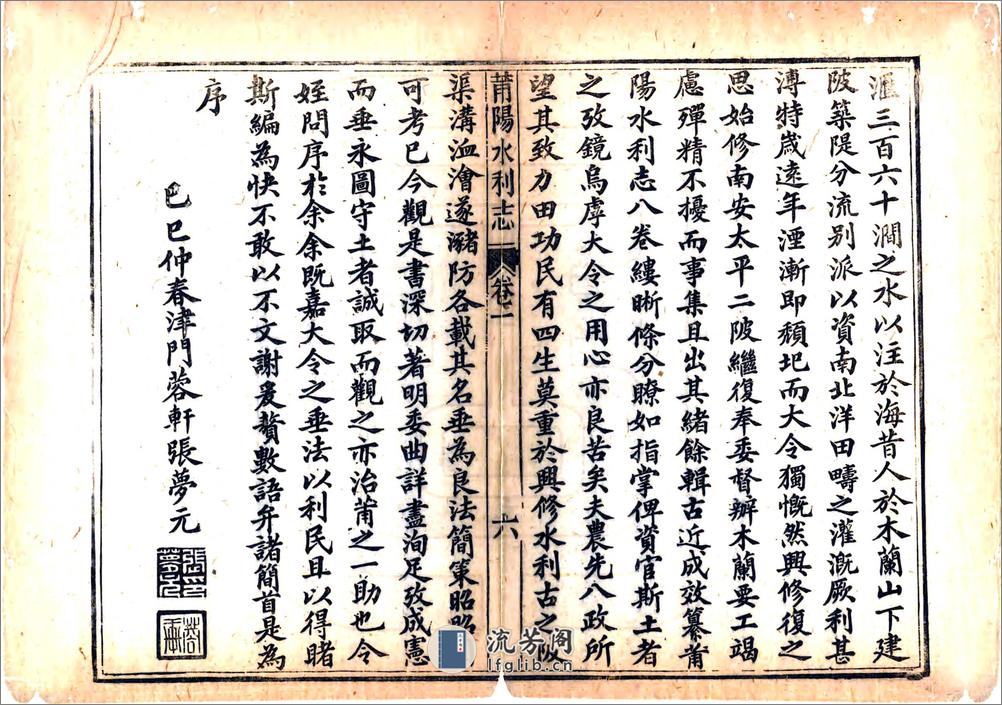 滙三百六十澗之水以注於海昔人於木蘭山下建
陂築隄分流別派以資南北洋田疇之灌溉厥利甚
溥特歲遠年湮漸即頹圯而大令獨慨然興修復之
思始修南安太平二陂繼復奉委督辦木蘭要工竭
慮殫精不擾而事集且出其緒餘輯古近成效纂莆
陽水利志八卷縷晰條分瞭如指掌俾資官斯土者
之攷鏡烏虖大令之用心亦良苦矣夫農先八政所
望其致力田功民有四生莫重於興修水利古之陂
莆陽水利志
卷一
六
渠溝洫澮遂瀦防各載其名垂為良法簡策昭昭
可考已今觀是書深切著明委曲詳盡洵足攷成憲
而垂永圖守土者誠取而觀之亦治莆之一助也令
姪問序於余余既嘉大令之垂法以利民且以得睹
斯編為快不敢以不文謝爰贅數語弁諸簡首是為
序
巳巳仲春津門蓉軒張夢元
流芳阁
lfglib.cn